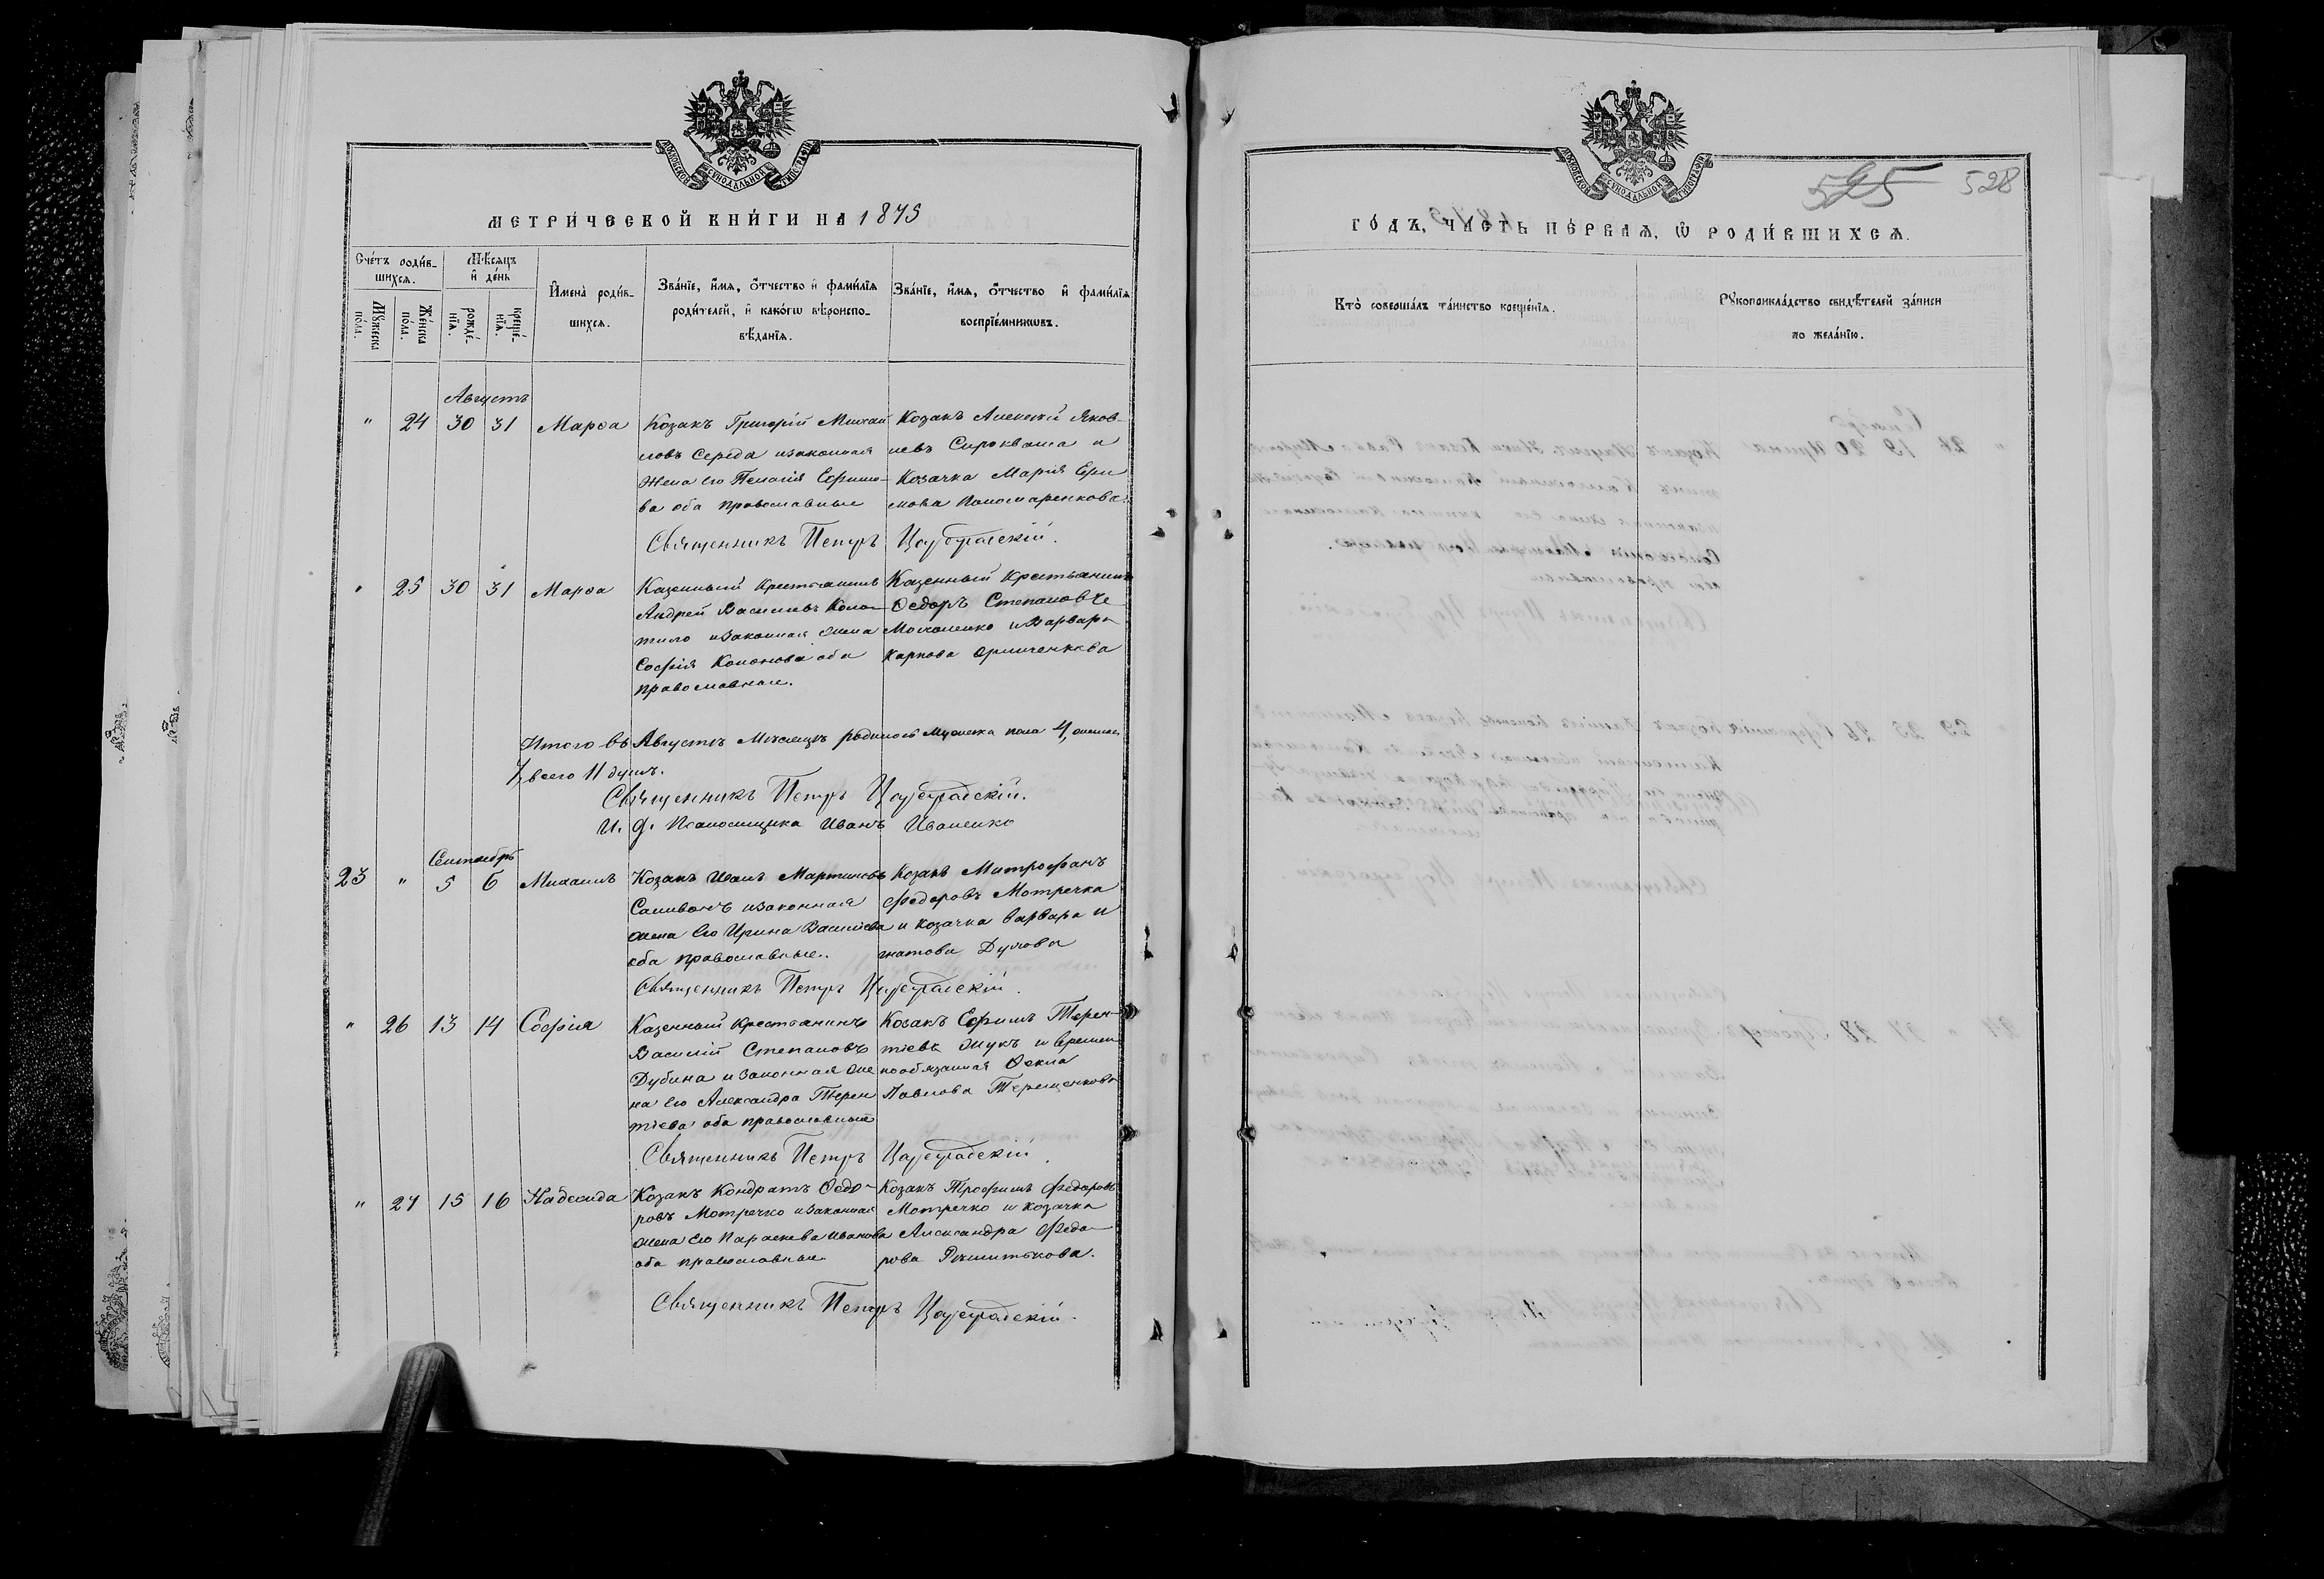 МОСКОВСКОЙ СУНОДАЛЬНОЙ ТИПОГРАФІИ
МЕТРИ́ЧЕСКОЙ КНИ́ГИ НА 1875
Сче́тъ роди́в-
шихся.
Мѣ́сяцъ
и҆ де́нь
Мꙋ́жеска
по́ла.
Же́нска
по́ла.
рожде́-
нїѧ.
креще́-
нїѧ.
И҆мена̀ роди́в-
шихся.
Зва́нїе, и҆́мя, ѻ҆́тчество и҆ фами́лїя
роди́телей, и҆ како́гѡ вѣроиспо-
вѣ́данїя.
Зва́нїе, и҆́мя, ѻ҆́тчество и҆ фами́лїя
воспрїе́мникѡвъ.
Августъ
" 24 30 31 Марѳа
Козакъ Григорій Михай
ловъ Середа изаконная
жена его Пелагія Ефимо-
ва оба православные
Козакъ Алексѣй Яков-
левъ Сирокваша и
Козачка Марія Ефи
мова Пономаренкова.
Священникъ Петръ Цареградскій.
" 25 30 31 Марѳа
Казенный крестьянинъ
Андрей Васильевъ Коло-
тило изаконная жена
Софія Кононова оба
православные.
Казенный крестьянинъ
Ѳедоръ Степановъ
Москаленко и Варвара
Карпова
Итого въ Августѣ мѣсяцѣ родилось мужеска пола 4, женска
7, всего 11 душъ.
Священникъ Петръ Цареградскій.
И. д. Псаломщика Иванъ Иваненко
Сентябрь
23 " 5 6 Михаилъ
Козакъ Иванъ Мартиновъ
Саливонъ изаконная
жена его Ирина Васильева
оба православные.
Козакъ Митрофанъ
Федоровъ Мотречка
и козачка Варвара И
гнатова
Священникъ Петръ Цареградскій.
" 26 13 14 Софія
Казенный крестьянинъ
Василій Степановъ
Дубина и законная же
на его Александра Терен
тіева оба православные
Козакъ Ефимъ Терен-
тіевъ Жукъ и Времен
нообязанная Ѳекла
Павлова Терещенкова
Священникъ Петръ Цареградскій.
" 27 15 16 Надежда
Козакъ Кондратъ Ѳедо-
ровъ Мотречко изаконная
жена его Параскева Иванова
оба православные
Козакъ Трофимъ Федоровъ
Мотречко и козачка
Александра Федо-
рова
Священникъ Петръ Цареградскій.
МОСКОВСКОЙ СУНОДАЛЬНОЙ ТИПОГРАФІИ
525 528
ГО́ДЪ, ЧА́СТЬ ПЕ́РВАЯ, Ѽ РОДИ́ВШИХСЯ.
Кто̀ соверша́лъ та́инство креще́нїя.
Рꙋкоприкла́дство свидѣ́телей за́писи
по жела́нїю.